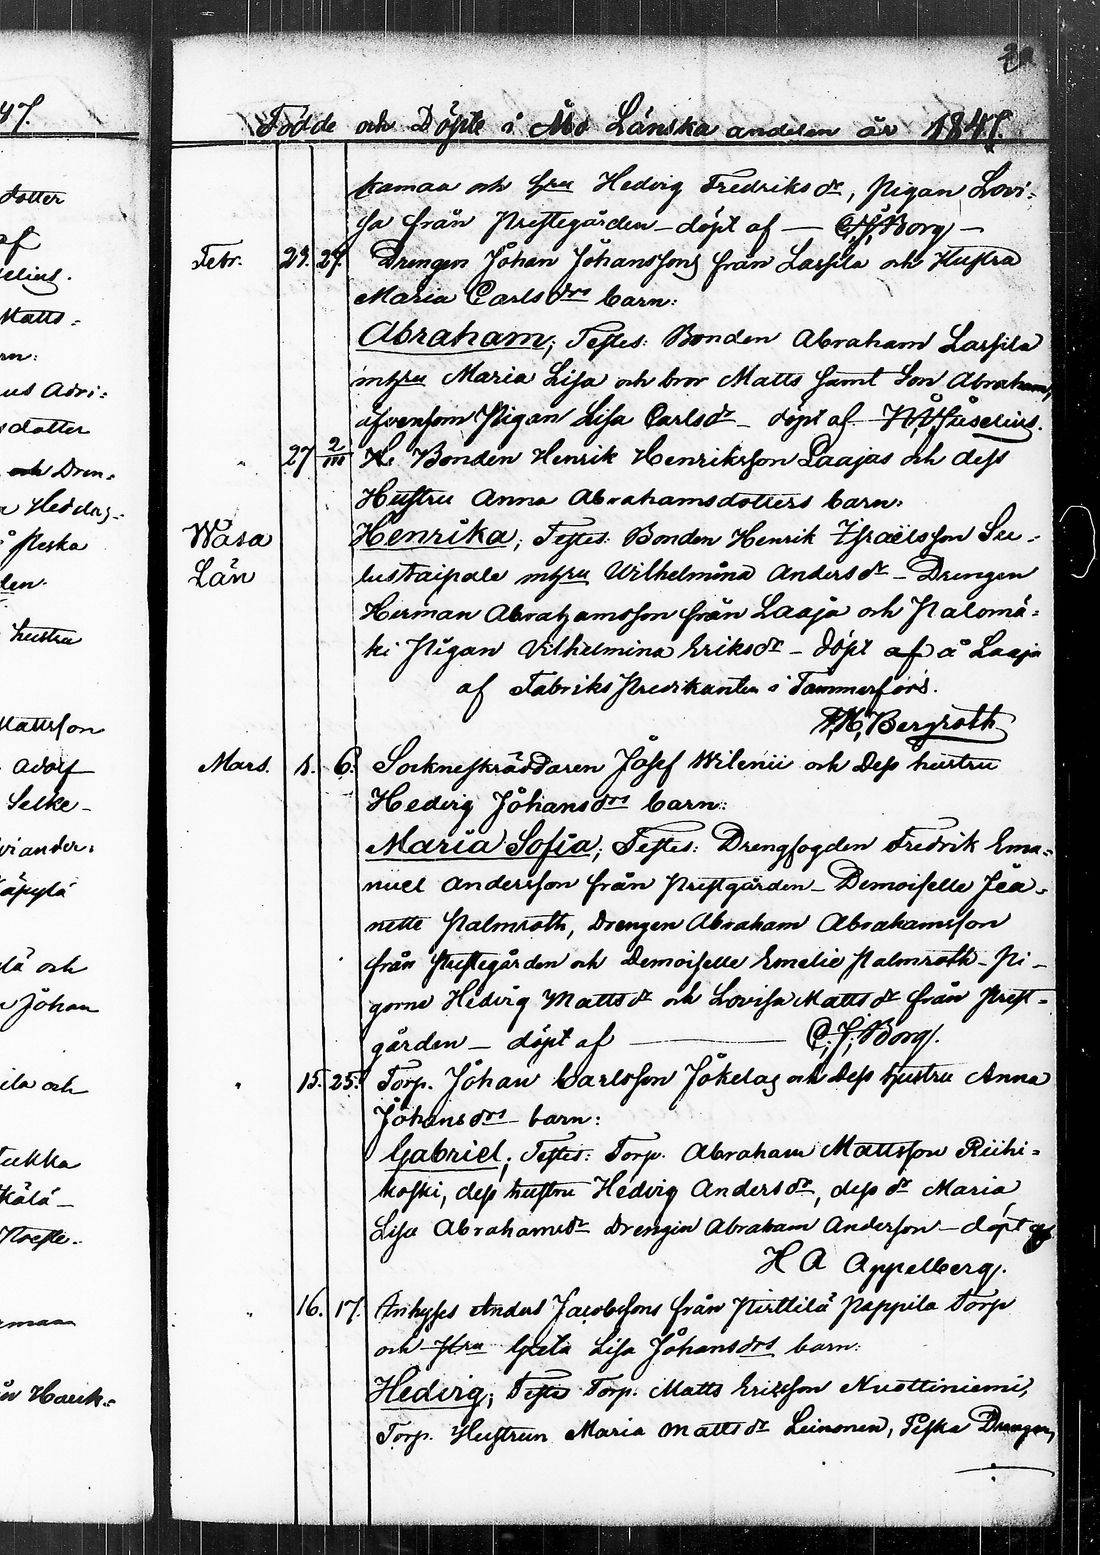 47.
dotter
af
selius.
Matts-
rn:
us Adri:
sdotter
och Dren-
a Hedvig-
Neska
den.
hustru
Mattsson
Adolf
Selke-
viander:
Käpylä
lä och
Johan
ila och
ukka
Kälä-
Preste-
rmaa
n Hauk-
Födde och Döpte i Åbo Länska andelen år 1847.
kamaa och hru Hedvig Fredriks dr, Pigan Lovi-
sa från Prestegården – döpt af — C. J. Borg –
Febr. 23. 27. Drengen Johan Johanssons från Lassila och Hustru
Maria Carls drs barn:
Abraham; Testes: Bonden Abraham Lassila
m hru Maria Lisa och bror Matts samt Son Abraham,
äfvensom Pigan Lisa Carls dr – döpt af
" 27 2/III Bonden Henrik Henriksson Laajas och dess
Hustru Anna Abrahamsdotters barn:
Wasa Henrika; Testes: Bonden Henrik Israëlsson Seu-
Län lustaipale m hru Wilhelmina Anders dr – Drengen
Herman Abrahamsson från Laaja och Palomä-
ki Pigan Vilhelmina Eriks dr – döpt af å Laaja
af Fabriks Predikanten i Tammerfors.
Bergroth
Mars. 1. 6. Sockneskräddaren Josef Wilenii och dess hustru
Hedvig Johans drs barn:
Maria Sofia; Testes: Drengfogden Fredrik Ema-
nuel Andersson från Prestgården – Demoiselle Jea-
nette Palmroth, Drengen Abraham Abrahamsson
från Prestegården och Demoiselle Emelie Palmroth – Pi-
gorne Hedvig Matts dr och Lovisa Matts dr från Prest-
gården – döpt af — C. J. Borg.
" 15. 25. Torp. Johan Carlsson Jokelas och dess hustru Anna
Johans drs barn:
Gabriel; Testes: Torp. Abraham Mattsson Riihi-
koski, dess hustru Hedvig Anders dr, dess dr Maria
Lisa Abrahams dr Drengen Abraham Anderson – döpt af
H A Appelberg.
" 16. 17. Inhyses Anders Jacobssons från Perttilä Pappila Torp
och Hru Greta Lisa Johans drs barn:
Hedvig; Testes Torp. Matts Eriksson Nuottiniemi,
Torp. Hustrun Maria Matts dr Leinonen, Piska Drengen,